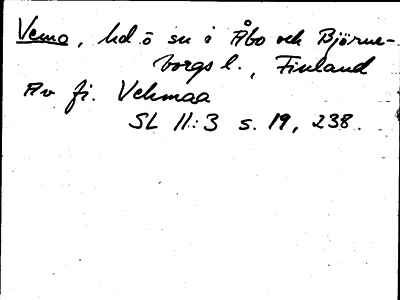 Vemo, hd o sn i Åbo och Björne-
borgs l., Finland
Av fi. Vehmaa
SL 11:3 s. 19, 238.